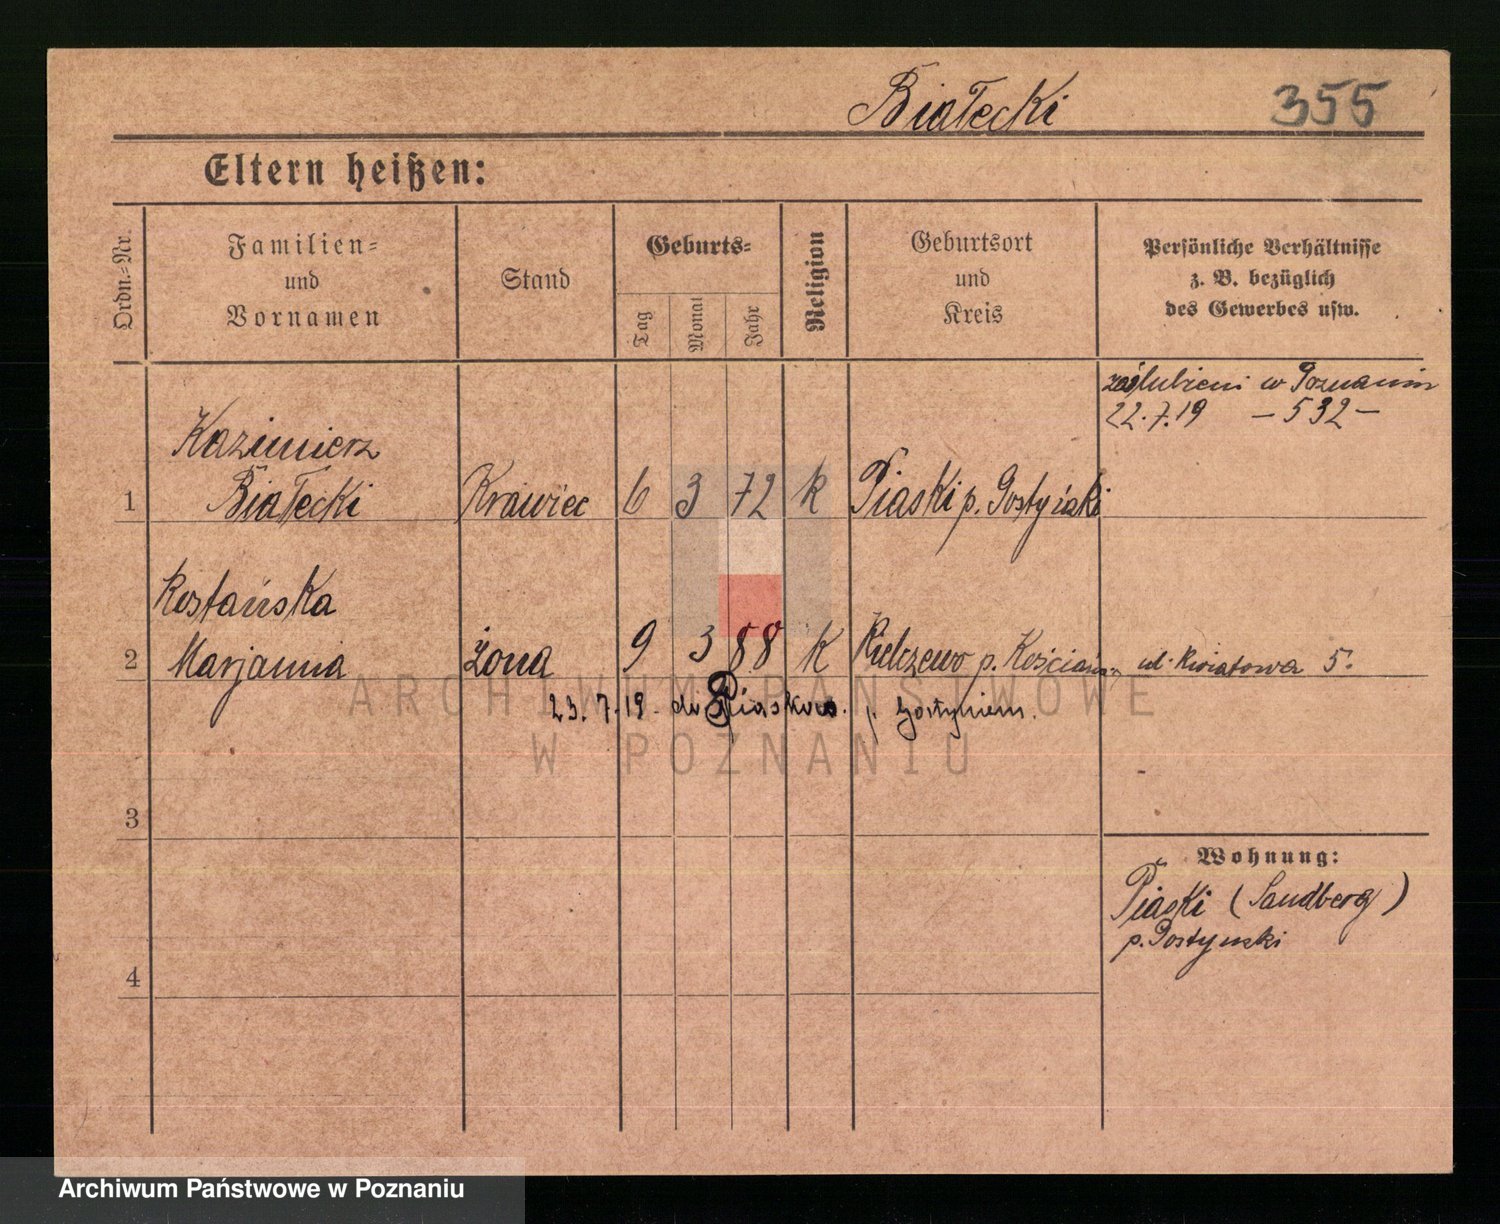 Białecki 355
Eltern heißen:
Ordn.=Nr.
Familien=
und
Vornamen
Stand
Geburts=
Tag
Monat
Jahr
Religion
Geburtsort
und
Kreis
Persönliche Verhältnisse
z. B. bezüglich
des Gewerbes usw.
zaślubieni w Poznaniu
22.7.19 – 532 –
Kazimierz
1 Białecki Krawiec 6 3 72 k Piaski p. Gostyński
Rostańska
2 Marjanna żona 9 3 88 k Kiełczewo p. Kościański ul. Kwiatowa 5.
23.7.19. do Piasków. p. Gostyniem.
ARCHIWUM PAŃSTWOWE
W POZNANIU
3
Wohnung:
Piaski (Sandberg)
p. Gostyński
4
Archiwum Państwowe w Poznaniu